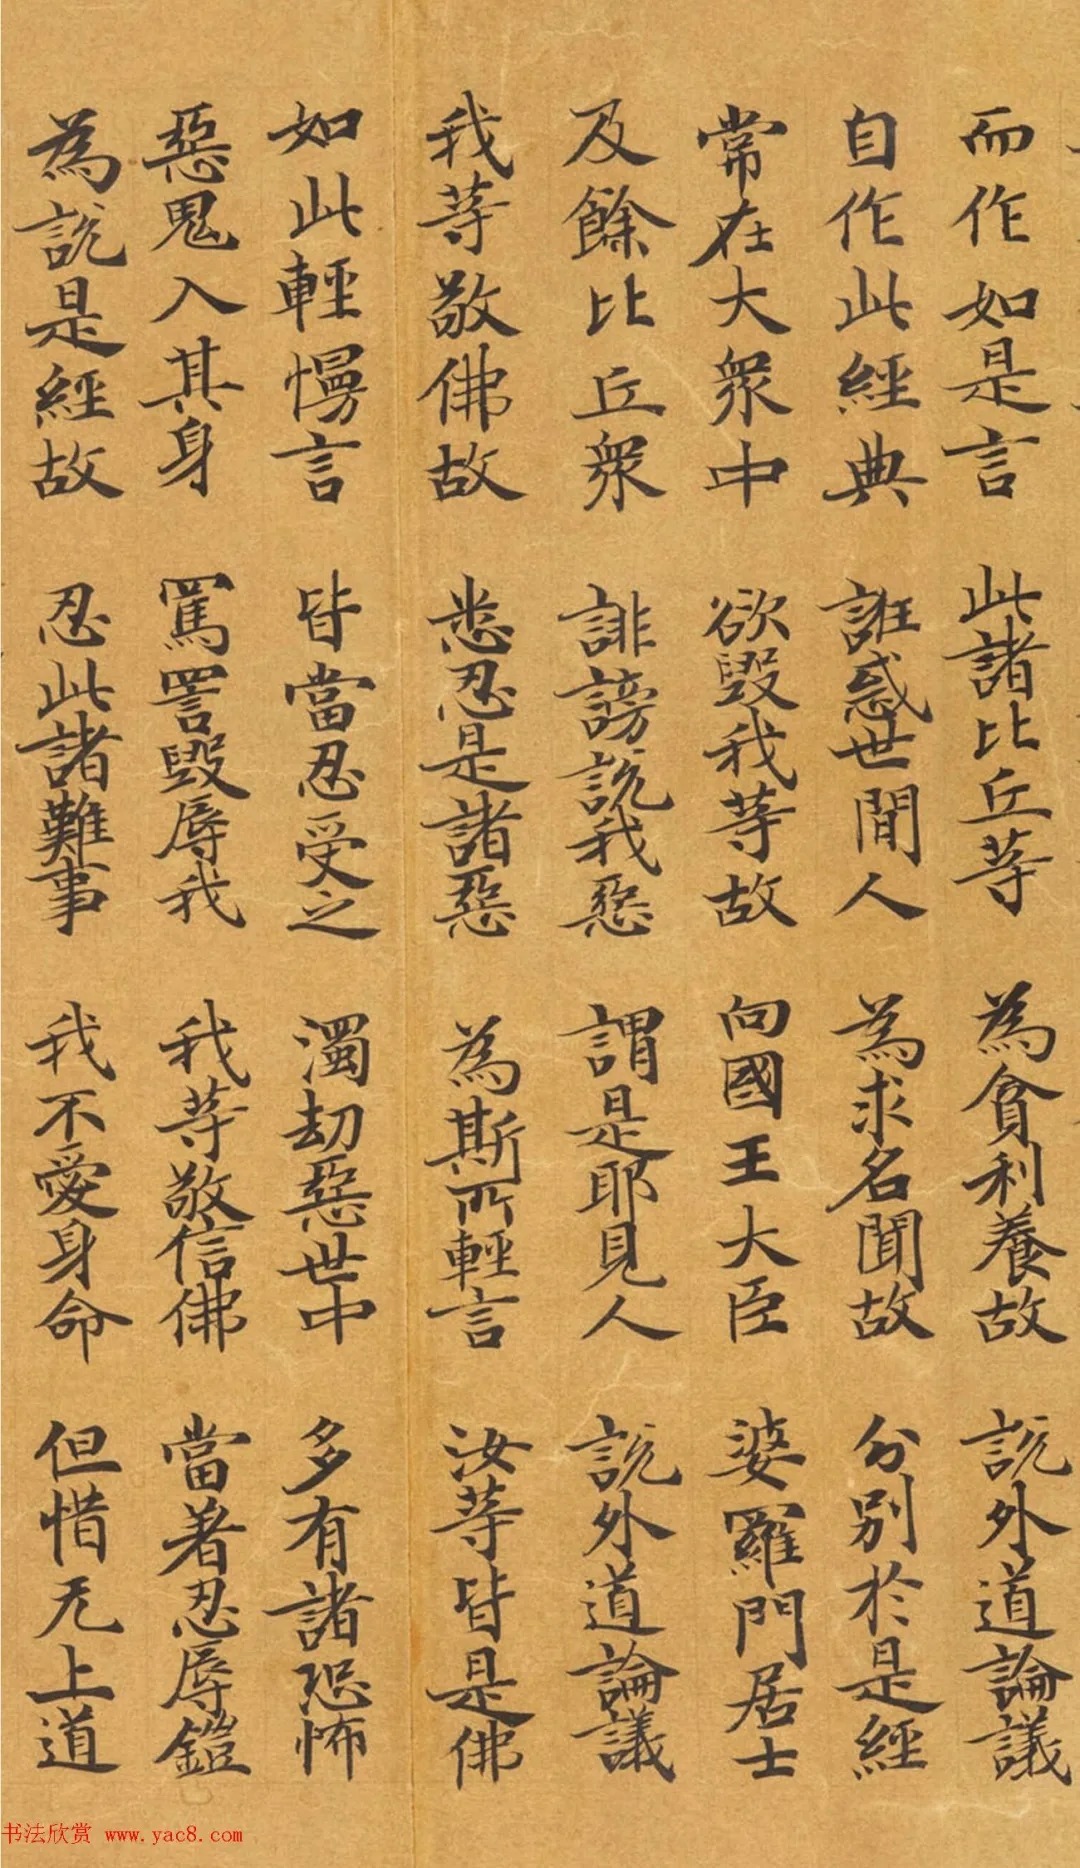 而作如是言　此諸比丘等　為貪利養故　說外道論議
自作此經典　誑惑世間人　為求名聞故　分別於是經
常在大眾中　欲毀我等故　向國王大臣　婆羅門居士
及餘比丘眾　誹謗說我惡　謂是耶見人　說外道論議
我等敬佛故　悉忍是諸惡　為斯所輕言　汝等皆是佛
如此輕慢言　皆當忍受之　濁劫惡世中　多有諸恐怖
惡鬼入其身　罵詈毀辱我　我等敬信佛　當著忍辱鎧
為說是經故　忍此諸難事　我不愛身命　但惜无上道
书法欣赏 www.yac8.com